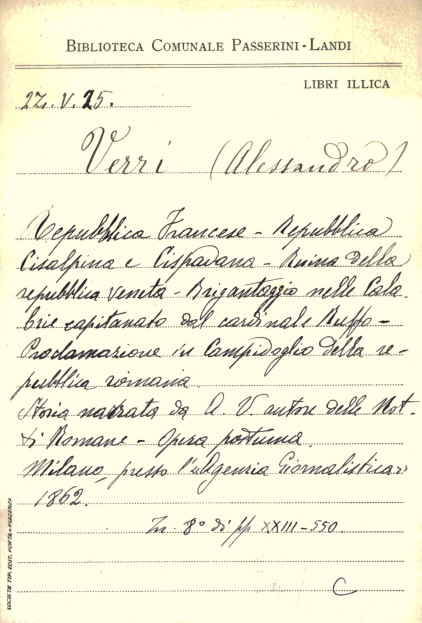 BIBLIOTECA COMUNALE PASSERINI-LANDI
LIBRI ILLICA
22.V.25.
Verri (Alessandro)
Repubblica Francese - Repubblica
Cisalpina e Cispadana - Ruina della
repubblica veneta - Brigantaggio nelle Cala-
brie capitanato dal cardinale Ruffo -
Proclamazione in Campidoglio della re-
pubblica romana.
Storia narrata da A. V. autore delle Not-
ti Romane - Opera postuma.
Milano, presso l'Agenzia Giornalistica
1862.
In 8° di pp XXIII-550.
C
SOCIETÀ TIP. EDIT. PORTA - PIACENZA